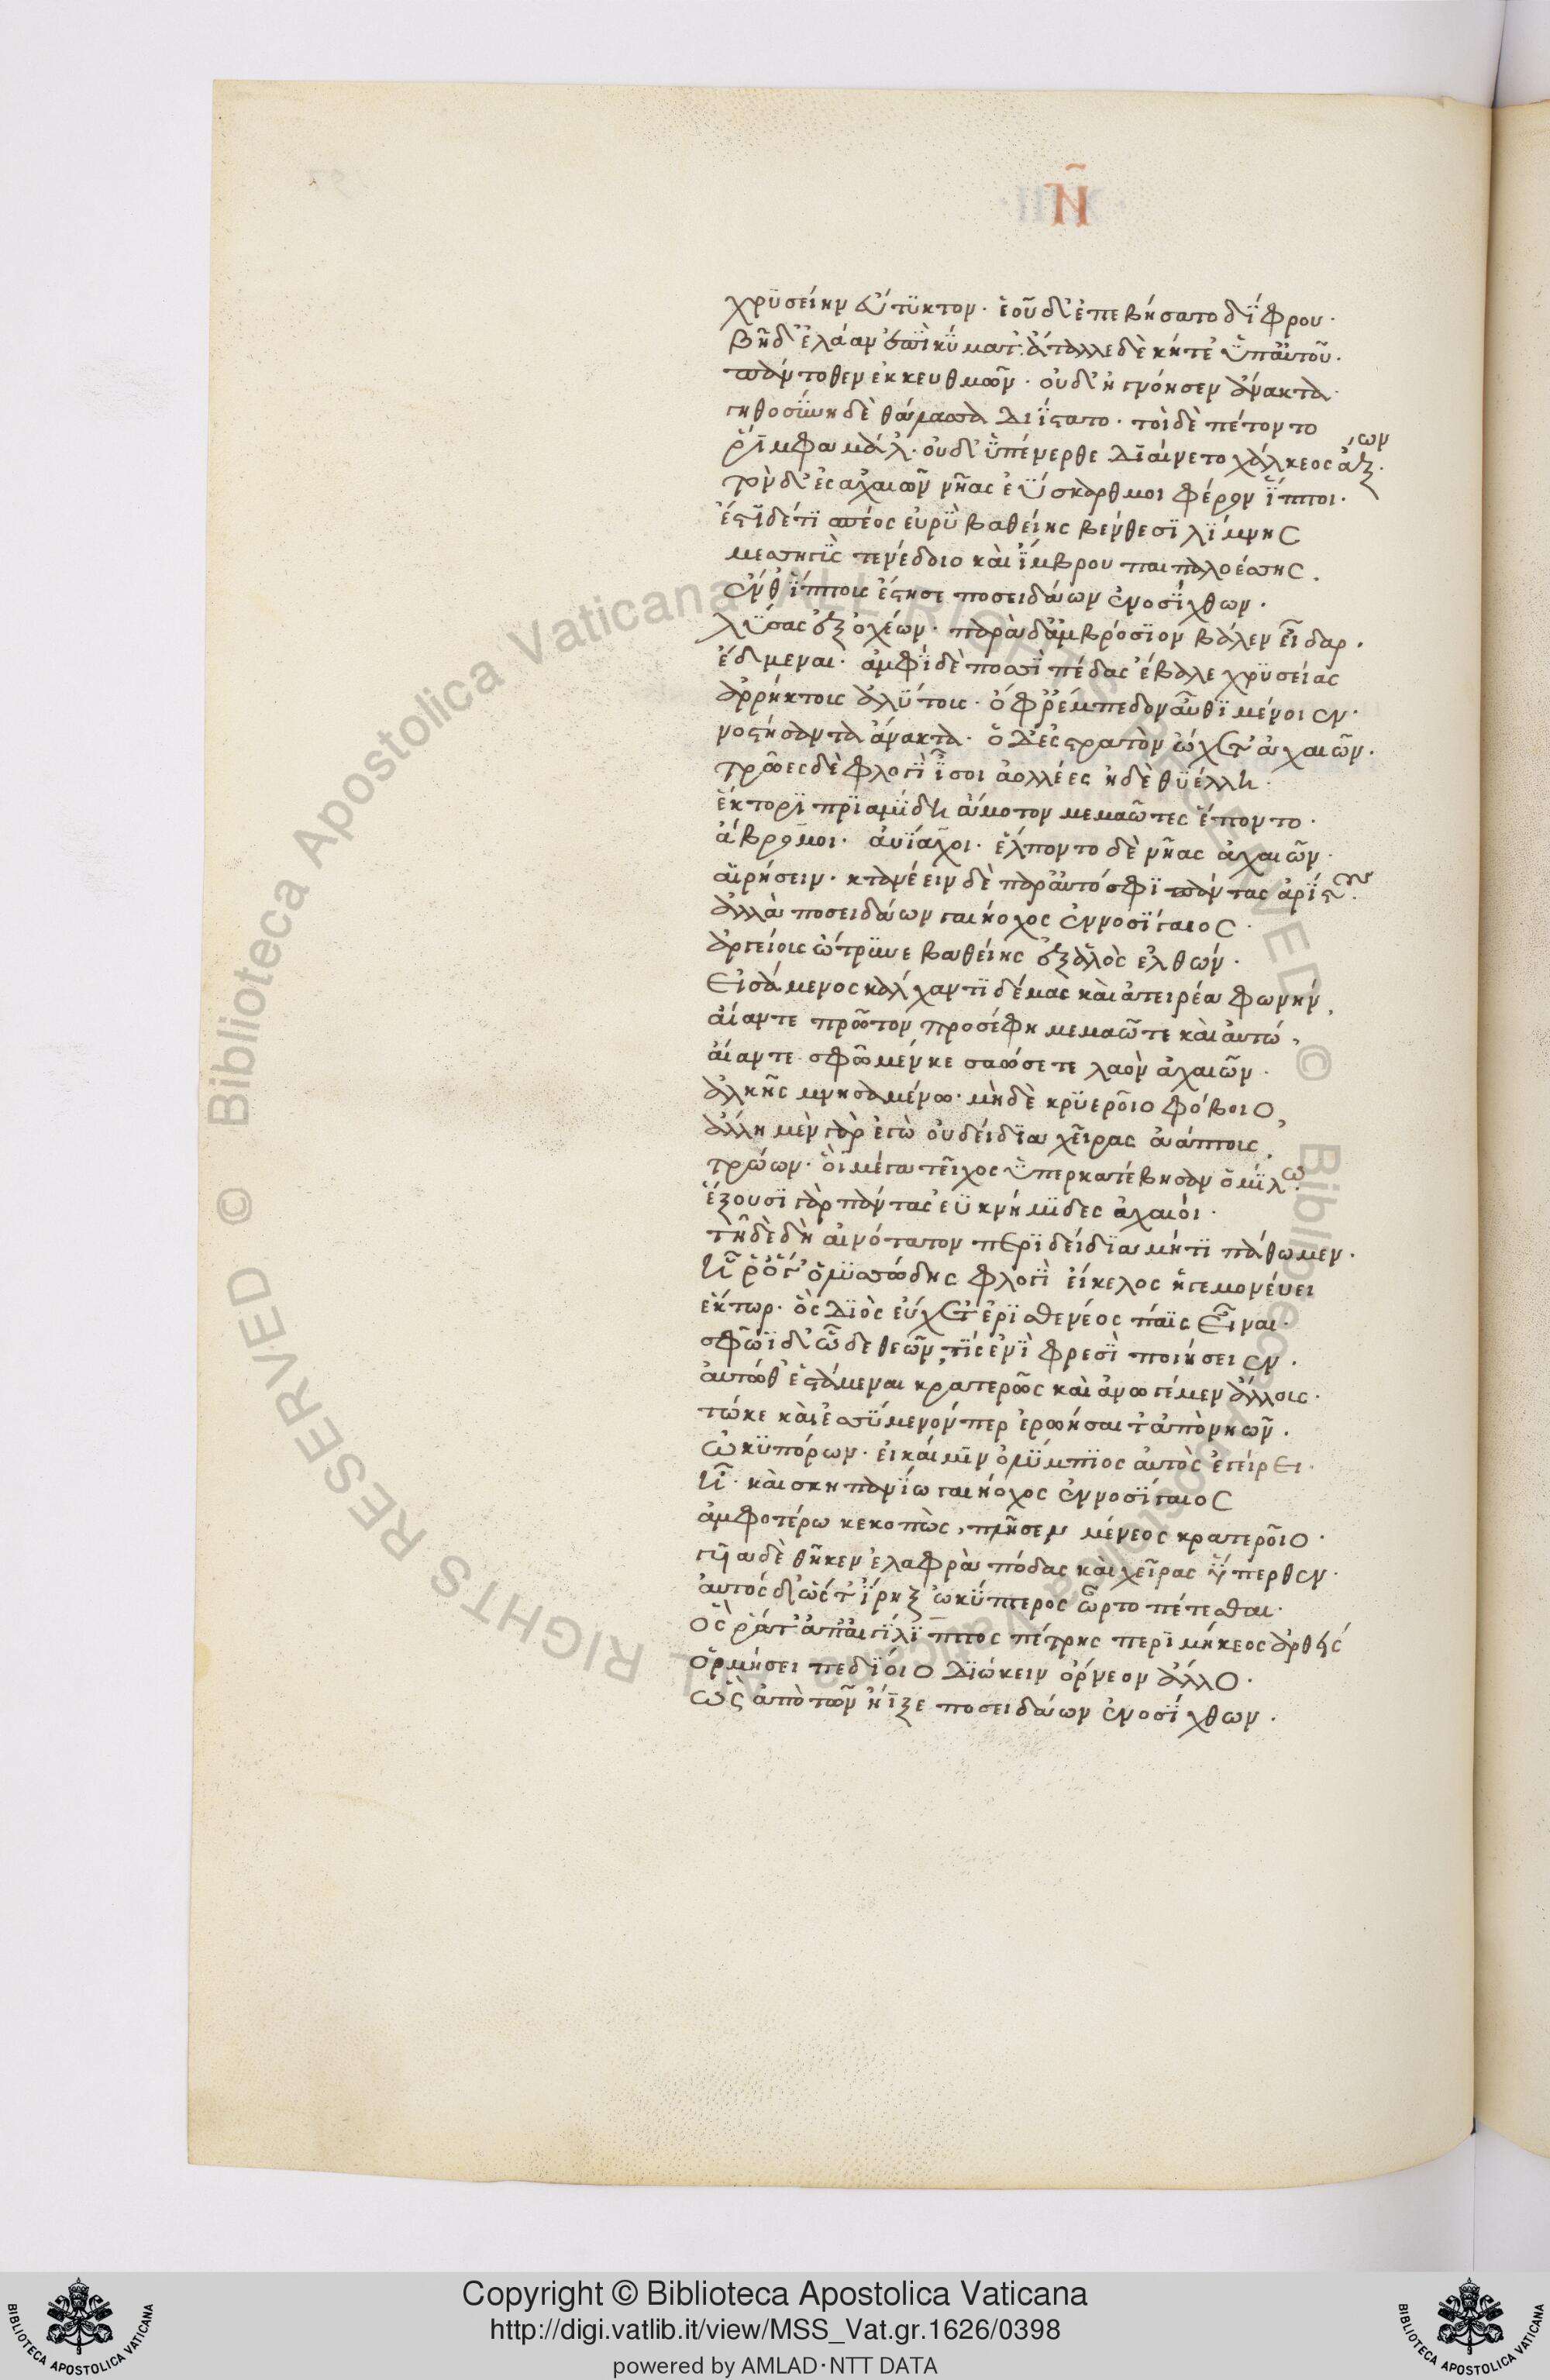 Ν̃
χρϋσείην ἐύτϋκτον· ἑοῦ δ' ἐπεβήσατο δΐφρου·
βῆ δ' ἐλάαν ἐπῒ κύματ'· ἄταλλε δὲ κήτε' ὑπ' ἀυτοῦ·
πάντοθεν ἐκ κευθμῶν· οὐδ' ἠγνόησεν ἄνακτα·
γηθοσύνη δὲ θάλασσα διΐστατο· τοὶ δὲ πέτοντο
ῥίμφα μάλ'· οὐδ' ὑπένερθε διαίνετο χάλκεος ἄξων·
τὸν δ' ἐς ἀχαιῶν νῆας ἐΰσκαρθμοι φέρον ἵπποι·
ἔστι δέ τι σπέος εὐρὺ βαθείης βένθεσι λίμνης
μεσσηγὺς τενέδοιο καὶ ἴμβρου παιπαλοέσσης.
ἔνθ' ἵππους ἔστησε ποσειδάων ἐνοσίχθων·
λύσας ἐξ ὀχέων· παρὰ δ' ἀμβρόσιον βάλεν εἶδαρ·
ἔδμεναι· ἀμφὶ δὲ ποσσὶ πέδας ἔβαλε χρυσείας
ἀρρήκτους ἀλύτους· ὄφρ' ἔμπεδον αὖθι μένοιεν·
νοστήσαντα ἄνακτα· ὁ δ' ἐς στρατὸν ᾤχετ' ἀχαιῶν·
τρῶες δὲ φλογὶ ἶσοι ἀολλέες ἠδὲ θυέλλη·
ἕκτορι πριαμίδη ἄμοτον μεμαῶτες ἕποντο·
ἄβρομοι· ἀυΐαχοι· ἔλποντο δὲ νῆας ἀχαιῶν·
αἱρήσειν· κτανέειν δὲ παρ' αὐτόσφι πάντας ἀρίστους·
ἀλλὰ ποσειδάων γαιήοχος ἐννοσίγαιος·
ἀργείους ὤτρυνε βαθείης ἐξ ἁλὸς ἐλθών·
εἰσάμενος κάλχαντι δέμας καὶ ἀτειρέα φωνήν,
αἴαντε πρῶτον προσέφη μεμαῶτε καὶ αὐτώ,
αἴαντε σφῶ μέν κε σαώσετε λαὸν ἀχαιῶν·
ἀλκῆς μνησαμένω· μὴ δὲ κρυεροῖο φόβοιο,
ἄλλη μὲν γὰρ ἐγὼ οὐ δείδια χεῖρας ἀάπτους,
τρώων· οἳ μέγα τεῖχος ὑπερκατέβησαν ὁμίλω·
ἕξουσι γὰρ πάντας ἐϋκνήμιδες ἀχαιοί·
τῆ δὲ δὴ αἰνότατον περιδείδια μήτι πάθωμεν·
ἧ ῥ' ὅγ' ὁ λυσσώδης φλογὶ εἴκελος ἡγεμονεύει
ἕκτωρ· ὃς διὸς εὔχετ' ἐρισθενέος πάϊς εἶναι·
σφῶϊ δ' ὧδε θεῶν τὶς ἐνὶ φρεσὶ ποιήσειεν·
αὐτώθ' ἑστάμεναι κρατερῶς καὶ ἀνωγέμεν ἄλλους·
τώ κε καὶ ἐσσύμενόν περ ἐρωήσαιτ' ἀπὸ νηῶν·
ὠκυπόρων· εἰ καί μιν ὀλύμπιος αὐτὸς ἐγείρει·
ἦ· καὶ σκηπανίω γαιήοχος ἐννοσίγαιος
ἀμφοτέρω κεκοπὼς, πλῆσεν μένεος κρατεροῖο·
γυῖα δὲ θῆκεν ἐλαφρὰ πόδας καὶ χεῖρας ὕπερθεν·
αὐτός δ' ὥς τ' ἴρηξ ὠκύπτερος ὦρτο πέτεσθαι·
ὅς ῥά τ' ἀπ' αἰγίλιπος πέτρης περιμήκεος ἀρθεὶς
ὁρμήσει πεδίοιο διώκειν ὄρνεον ἄλλο·
ὣς ἀπὸ τῶν ἤϊξε ποσειδάων ἐνοσίχθων·
Copyright © Biblioteca Apostolica Vaticana
http://digi.vatlib.it/view/MSS_Vat.gr.1626/0398
powered by AMLAD･NTT DATA